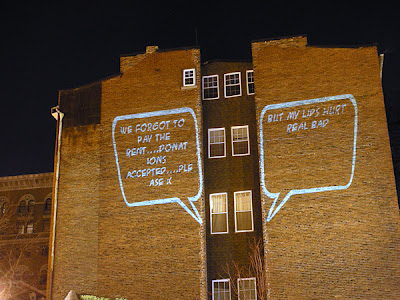 WE FORGOT TO
PAY THE
RENT....DONAT
IONS
ACCEPTED....PLE
ASE X
BUT MY LIPS HURT
REAL BAD